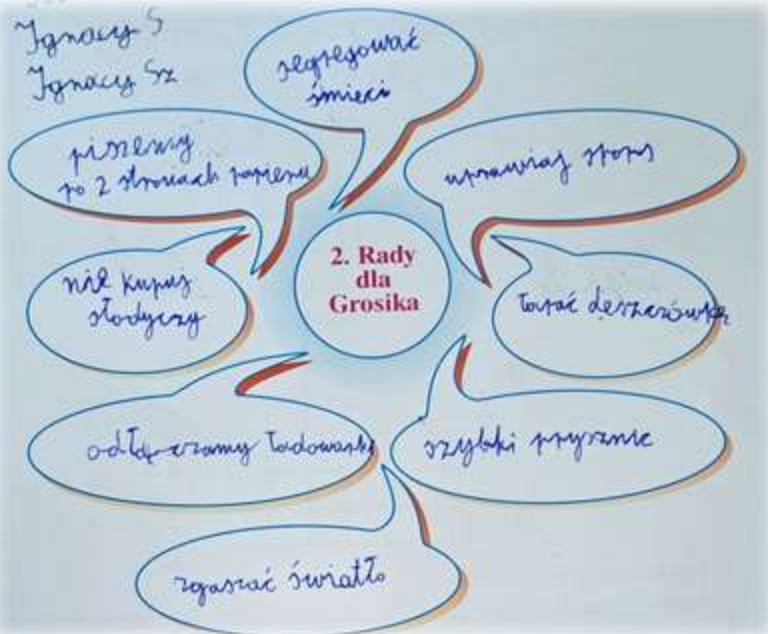 Ignacy S
Ignacy Sz
segregować
śmieci
piszemy
po 2 stronach papieru
uprawiaj sport
2. Rady
dla
Grosika
nie kupuj
słodyczy
łapać deszczówkę
odłączamy ładowarki
szybki prysznic
zgaszać światło